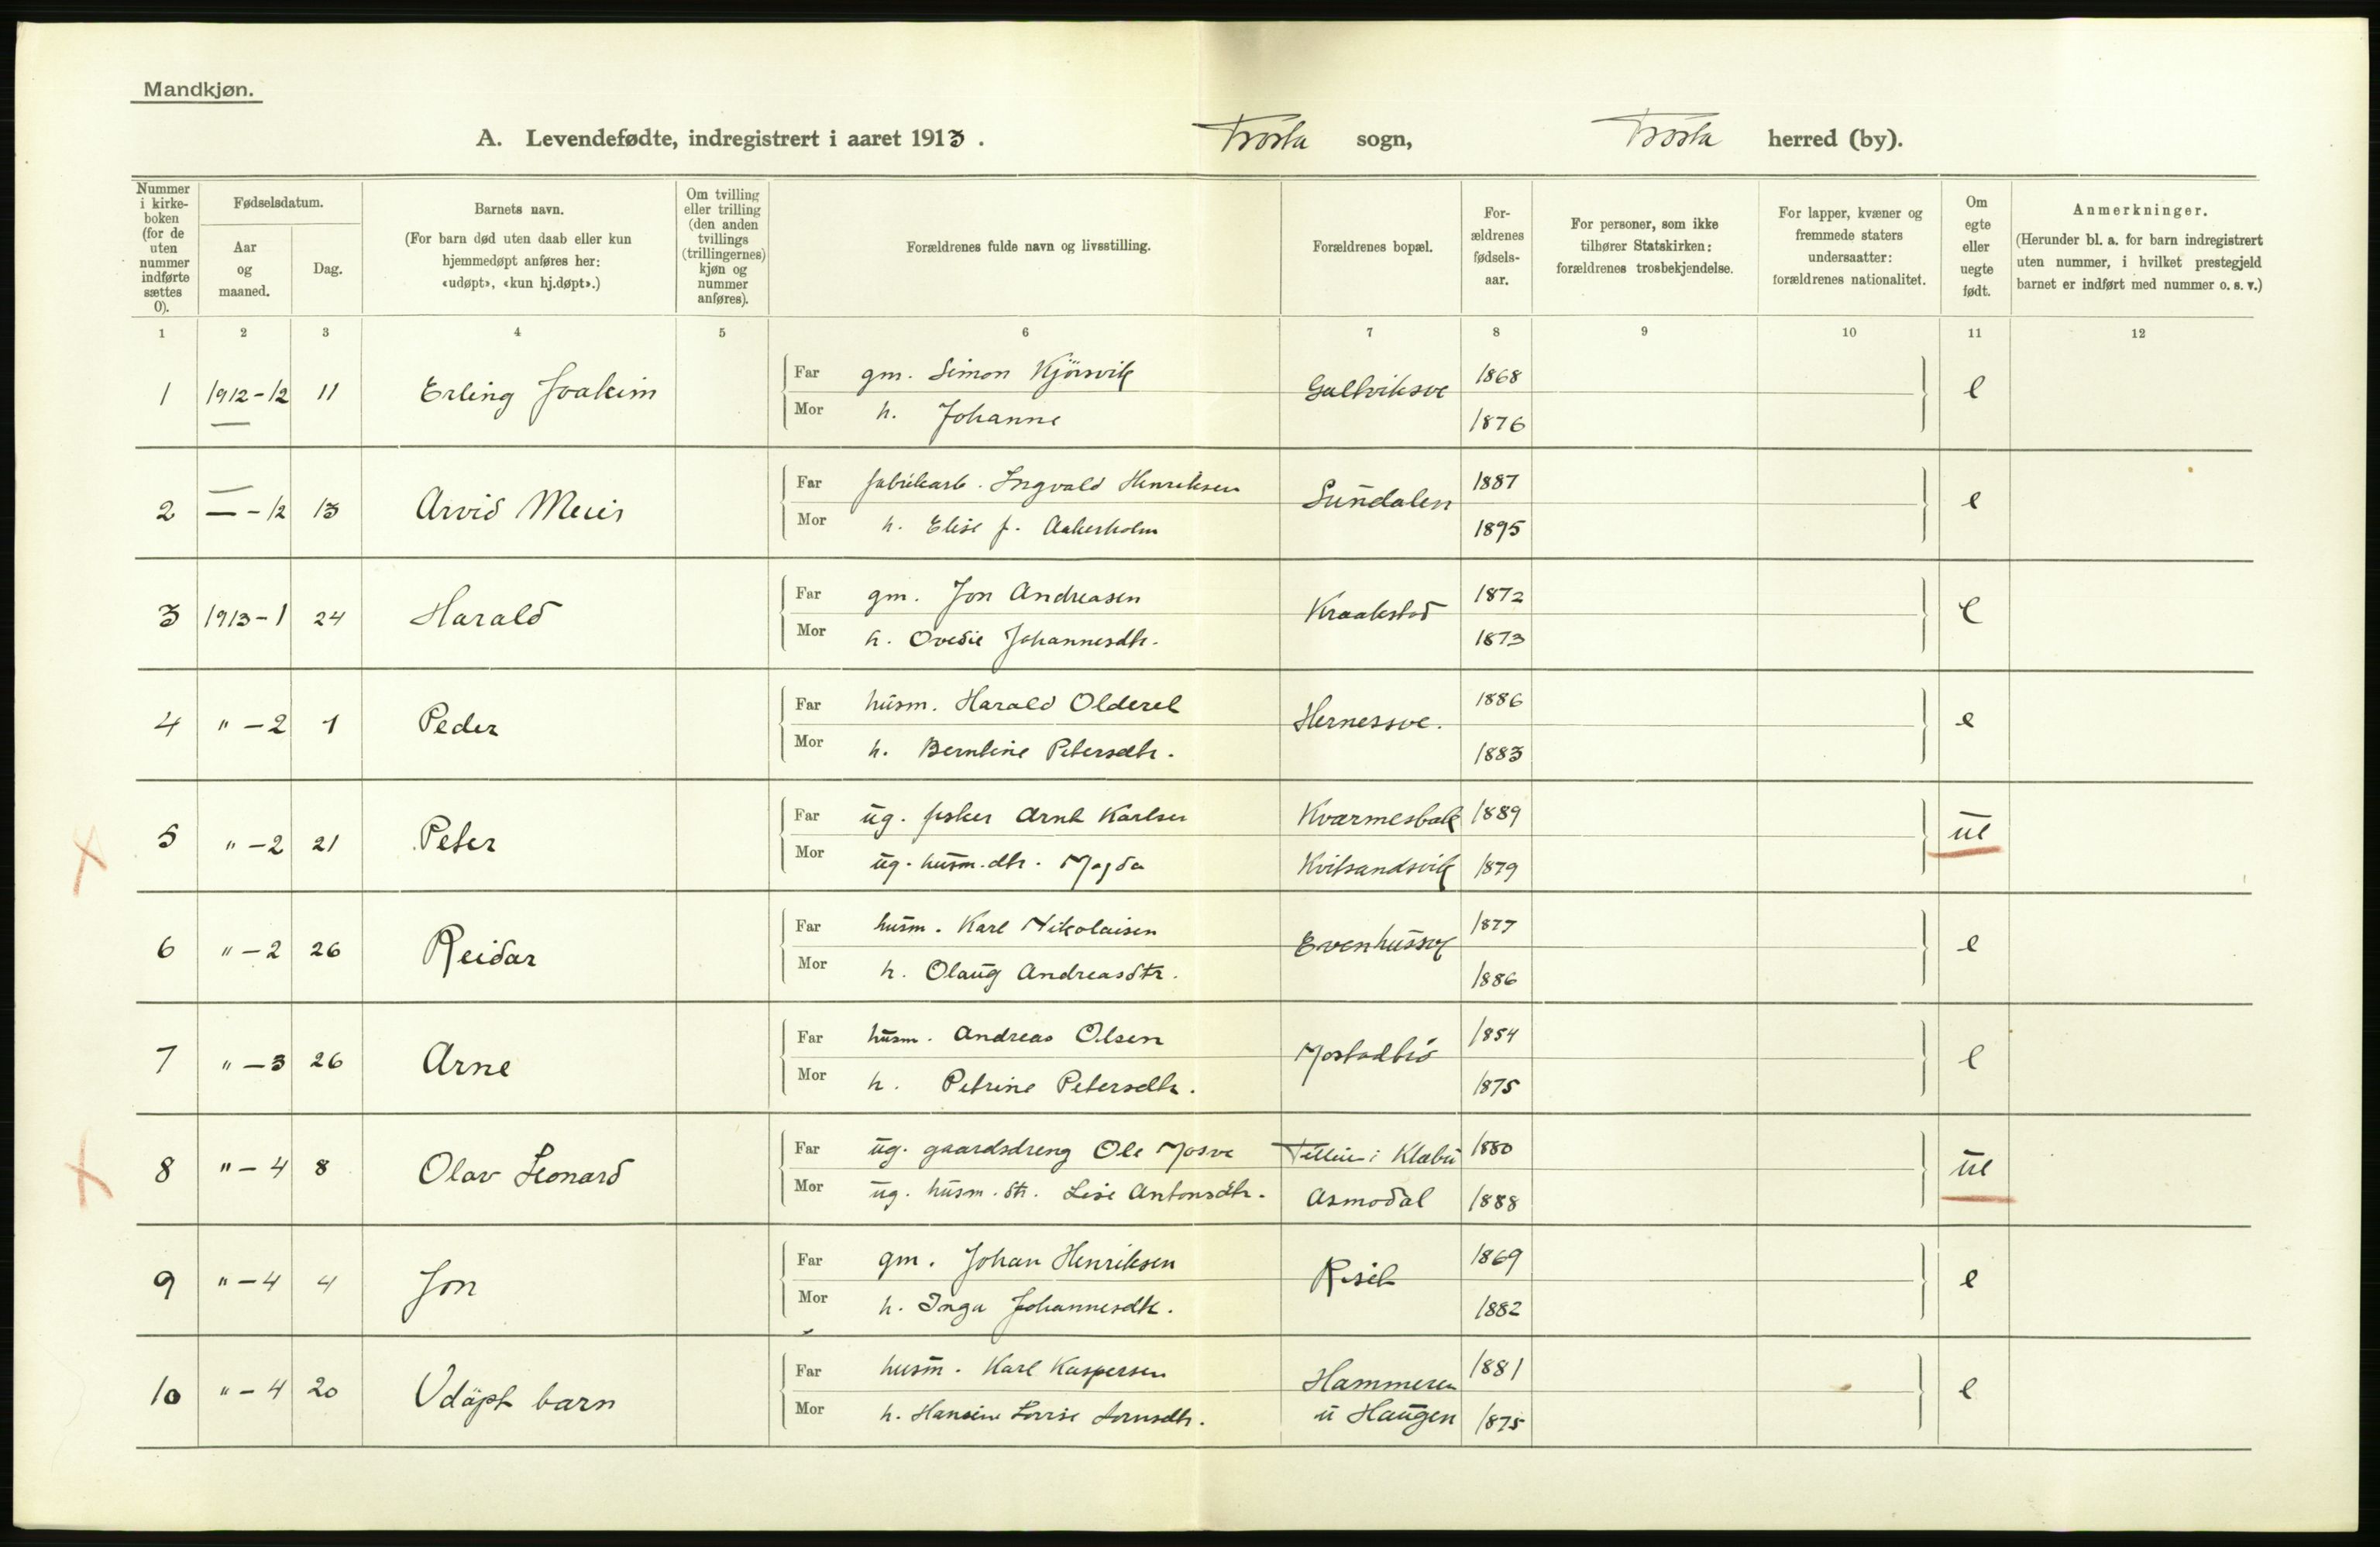 Mandkjøn.
A. Levendefødte, indregistrert i aaret 1913. Frosta sogn, Frosta herred (by).
Nummer i kirkeboken (for de uten nummer indførte sættes 0).
Fødselsdatum.
Aar og maaned.
Dag.
Barnets navn.
(For barn død uten daab eller kun hjemmedøpt anføres her: «udøpt», «kun hj.døpt».)
Om tvilling eller trilling (den anden tvillings (trillingernes) kjøn og nummer anføres).
Forældrenes fulde navn og livsstilling.
Forældrenes bopæl.
Forældrenes fødselsaar.
For personer, som ikke tilhører Statskirken: forældrenes trosbekjendelse.
For lapper, kvæner og fremmede staters undersaatter: forældrenes nationalitet.
Om egte eller uegte født.
Anmerkninger.
(Herunder bl. a. for barn indregistrert uten nummer, i hvilket prestegjeld barnet er indført med nummer o. s. v.)
1 2 3 4 5 6 7 8 9 10 11 12
1 1912-12 11 Erling Joakim Far gm. Simon Kjörsvik Galtviksve 1868 e
Mor h. Johanne 1876
2 — - 12 13 Arvid Far fabrikarb. Ingvald Henriksen Sundalen 1887 e
Mor h. Elise f. Aakerholm 1895
3 1913-1 24 Harald Far gm. Jon Andreasen Kraakstad 1872 e
Mor h. Ovedie Johannesdtr. 1873
4 " - 2 1 Peder Far husm. Harald Olderel Hernessve. 1886 e
Mor h. Berntine Petersdtr. 1883
5 " - 2 21 Peter Far ug. fisker Arnt Karlsen 1889 ue
Mor ug. husm.dtr. Magda Kvitsandsvik 1879
6 " - 2 26 Reidar Far husm. Karl Nikolaisen Evenhussve 1877 e
Mor h. Olaug Andreasdtr. 1886
7 " - 3 26 Arne Far husm. Andreas Olsen Mostadtrö 1854 e
Mor h. Petrine Petersdtr. 1875
8 " - 4 8 Olav Leonard Far ug. gaardsdreng Ole Mosve i Klæbu 1880 ue
Mor ug. husm.dtr. Lise Antonsdtr. Asmodal 1888
9 " - 4 4 Jon Far gm. Johan Henriksen 1869 e
Mor h. Inga Johannesdtr. 1882
10 " - 4 20 Udöpt barn Far husm. Karl Kaspersen Hammeren 1881 e
Mor h. Hansine Lovise u Haugen 1875